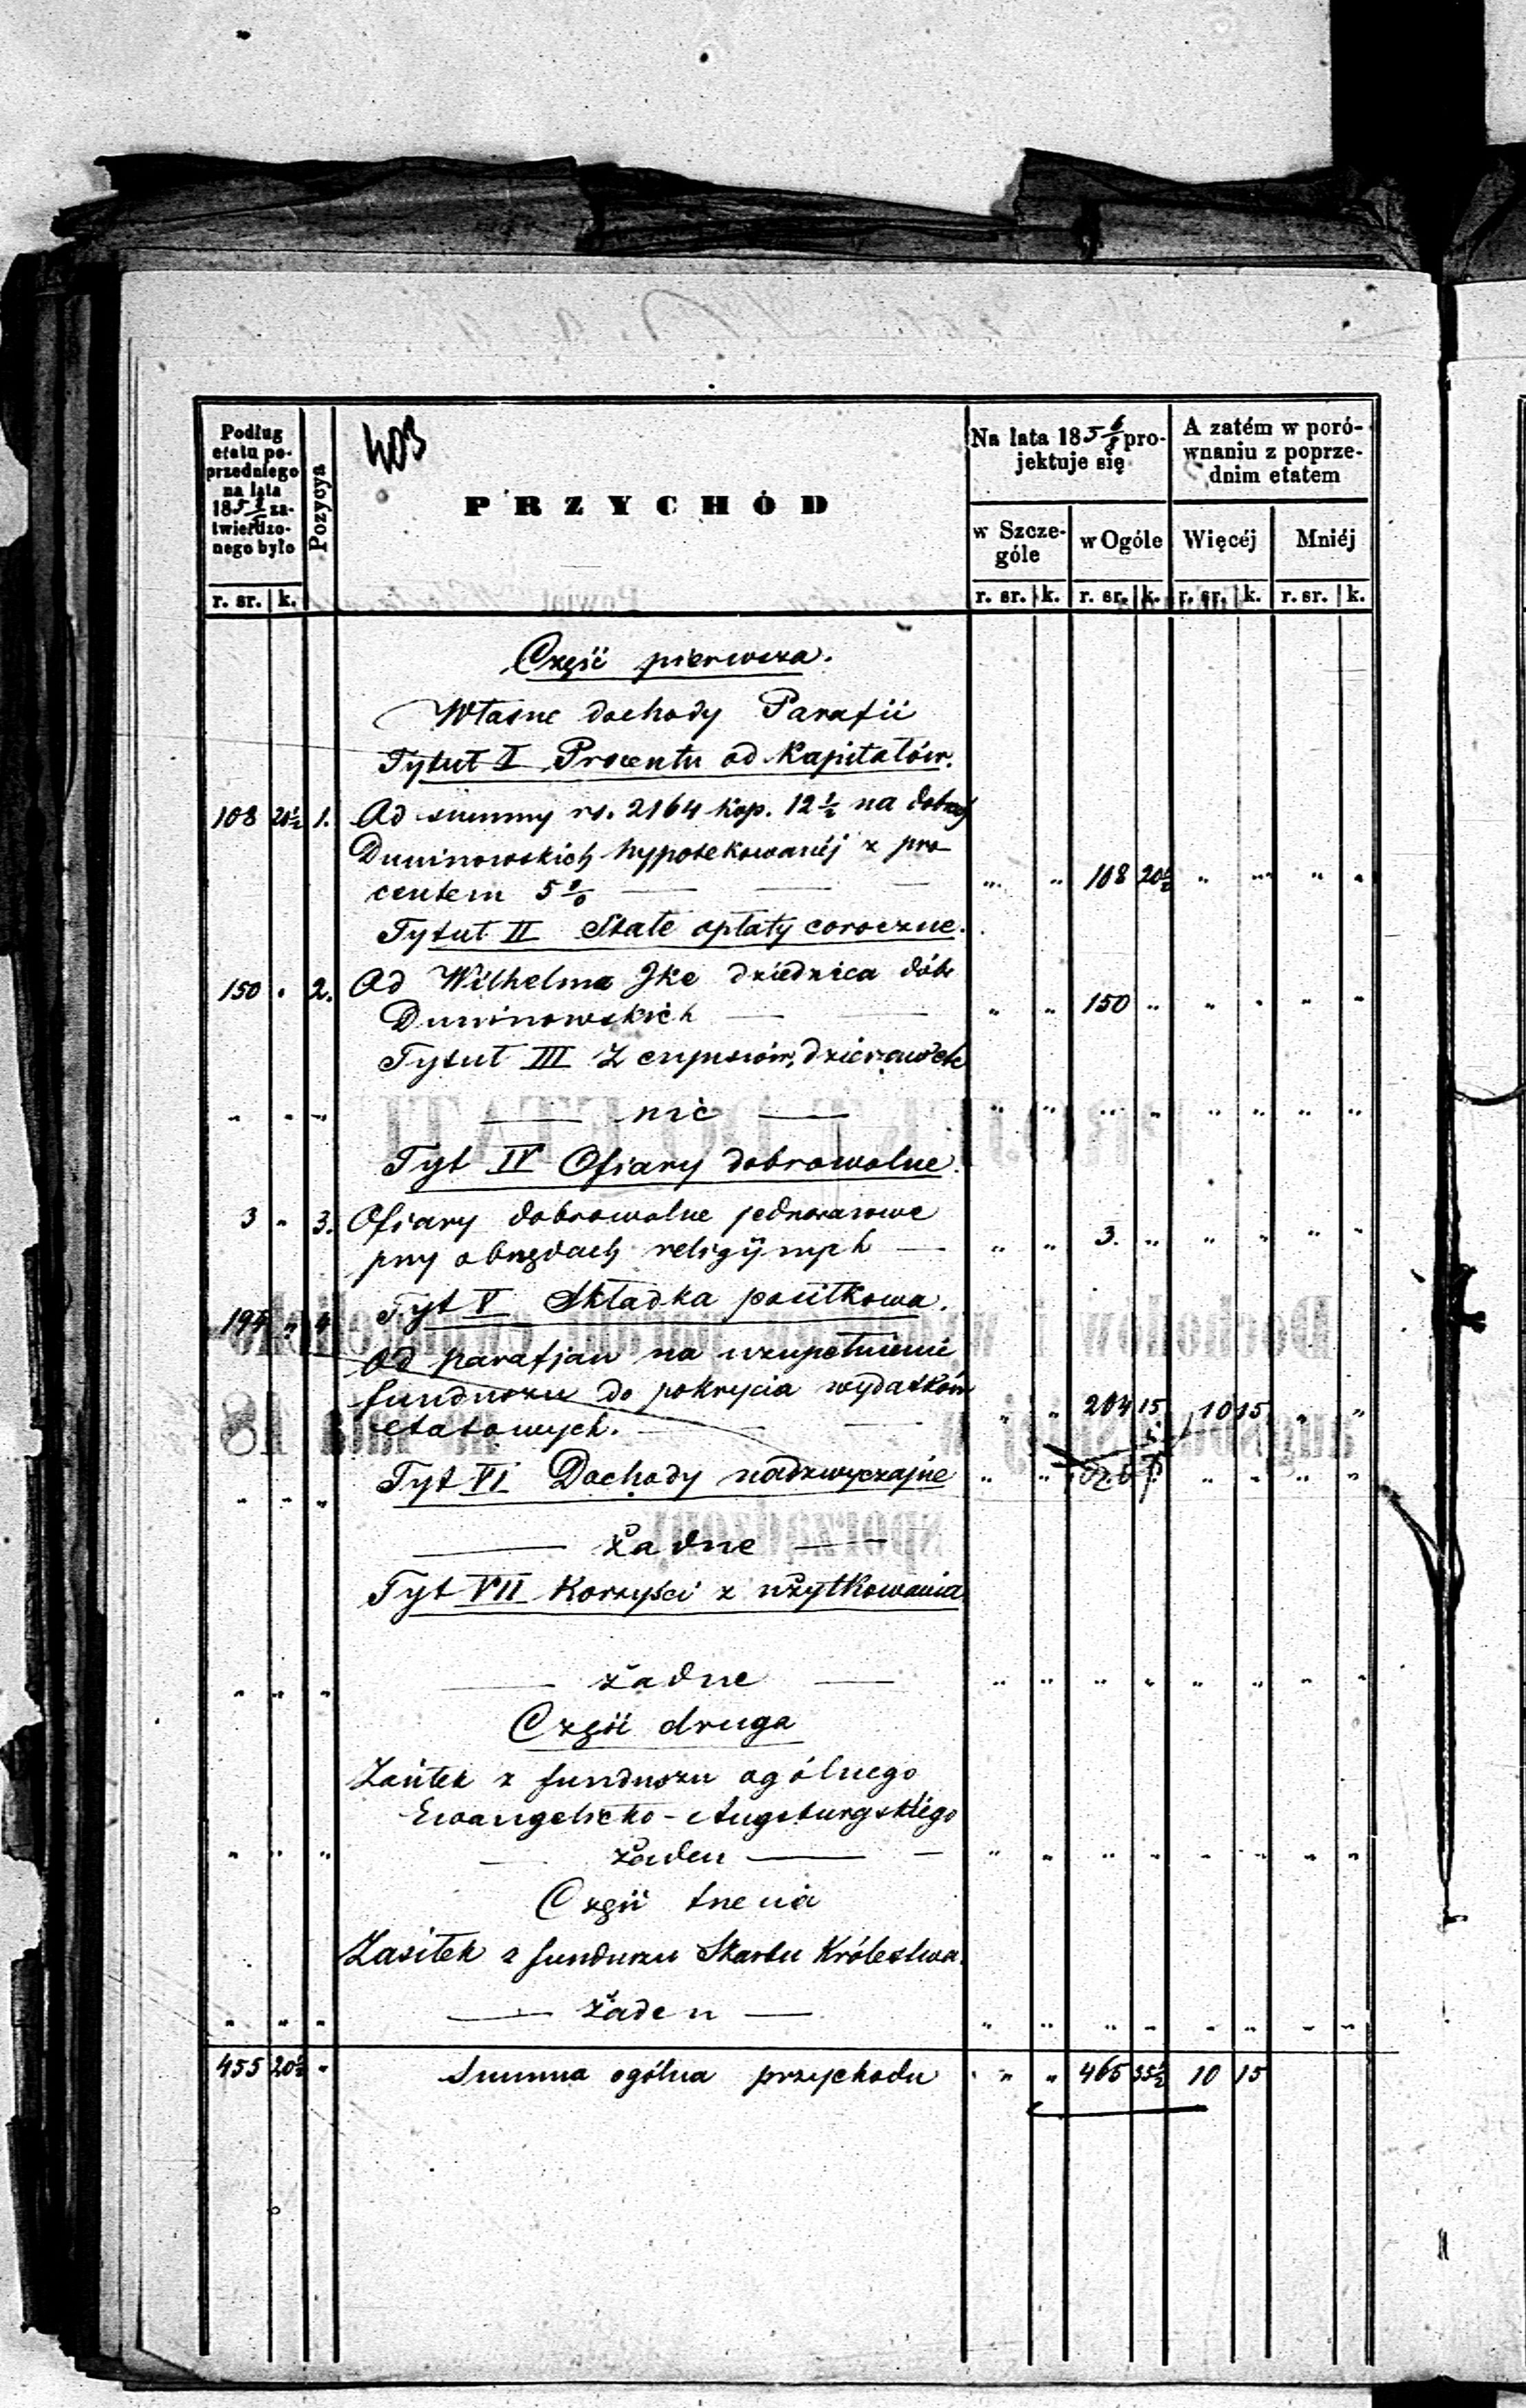 403
Podług etatu po-
przedniego
na lata
185 za-
twierdzo-
nego było
Pozycya
PRZYCHÓD
Na lata 185 6/8 pro-
jektuje się
A zatém w poró-
wnaniu z poprze-
dnim etatem
w Szcze-
góle
w Ogóle
Więcéj
Mniéj
r. sr. k. r. sr. k. r. sr. k. r. sr. k. r. sr. k.
Część pierwsza.
Własne dochody Parafii
Tytuł I Procentu od Kapitałów.
108 20½ 1. Od summy rs. 2164 kop. 12½ na dobrach
Duninowskich hypotekowanéj z pro
centem 5% " " 108 20½ " " " "
Tytuł II Stałe opłaty coroczne.
150 " 2. Od Wilhelma Ike dziedzica dób
Duninowskich " " 150 " " " " "
Tytuł III Z czynszów, dzierżawek
" " " nic " " " " " " " "
Tyt IV Ofiary dobrowolne.
3 " 3. Ofiary dobrowolne jednorazowe
przy obrzędach religijnych " " 3. " " " " "
Tyt V Składka posiłkowa.
194 " 4
Od parafjan na uzupełnienie
funduszu do pokrycia wydatków
etatowych. " " 204 15 10 15 " "
Tyt VI Dochody nadzwyczajne
" " " żadne
Tyt VII Korzyści z użytkowania
" " " żadne " " " " " " " "
Część druga
Zasiłek z funduszu ogólnego
Ewangelicko-Augsburgskiégo
" " " żaden " " " " " " " "
Część trzecia
Zasiłek z funduszu Skarbu Królestwa.
" " " żaden " " " " " " " "
455 20½ " Summa ogólna przychodu " " 465 35½ 10 15